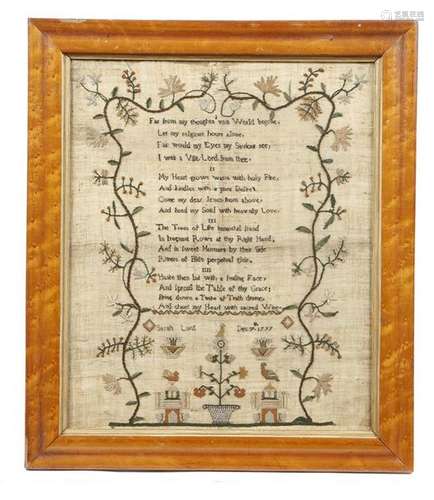 Far from my thoughts vain World begone
Let my religious hours alone,
Fain would my Eyes my Saviour see,
I wait a Visit Lord from thee.
II
My Heart grows warm with holy Fire,
And kindles with a pure Desire,
Come my dear Jesus from above,
And feed my Soul with heavenly Love.
III
The Trees of Life immortal stand
In frequent Rows at thy Right Hand,
And in sweet Murmurs by their Side
Rivers of Bliss perpetual glide,
IIII
Haste then but with a smiling Face,
And spread the Table of thy Grace,
Bring down a Taste of Truth divine,
And chear my Heart with sacred Wine.
Sarah Lord Decr 9th 1797